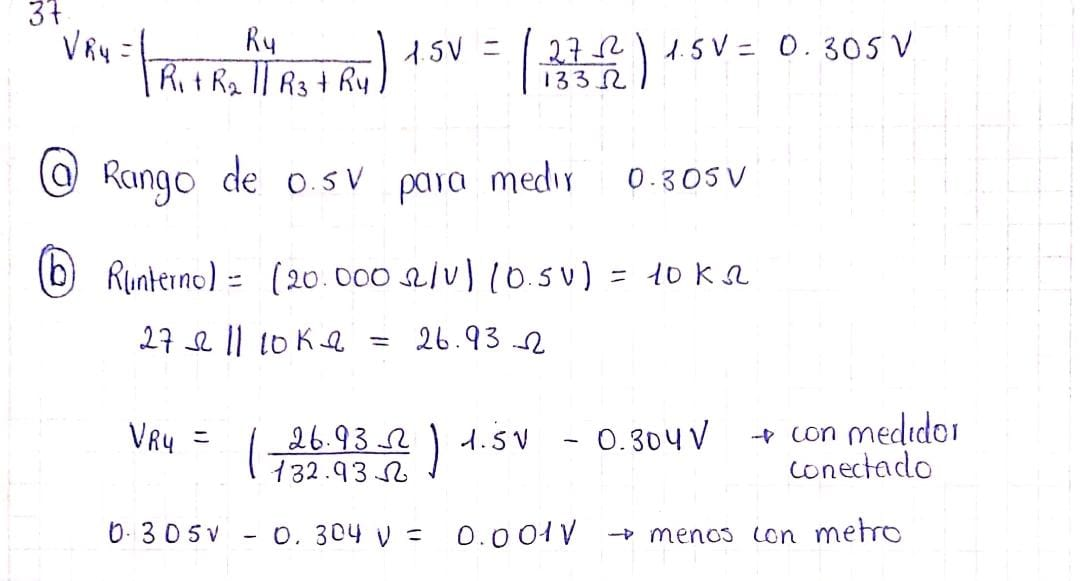 37
VR4 = (R4 / R1 + R2 || R3 + R4) 1.5V = (27 Ω / 133 Ω) 1.5V = 0.305 V
ⓐ Rango de 0.5V para medir 0.305V
ⓑ R(interno) = (20.000 Ω/V) (0.5V) = 10 K Ω
27 Ω || 10K Ω = 26.93 Ω
VR4 = (26.93 Ω / 132.93 Ω) 1.5V - 0.304V → con medidor
conectado
0.305V - 0.304 V = 0.001V → menos con metro